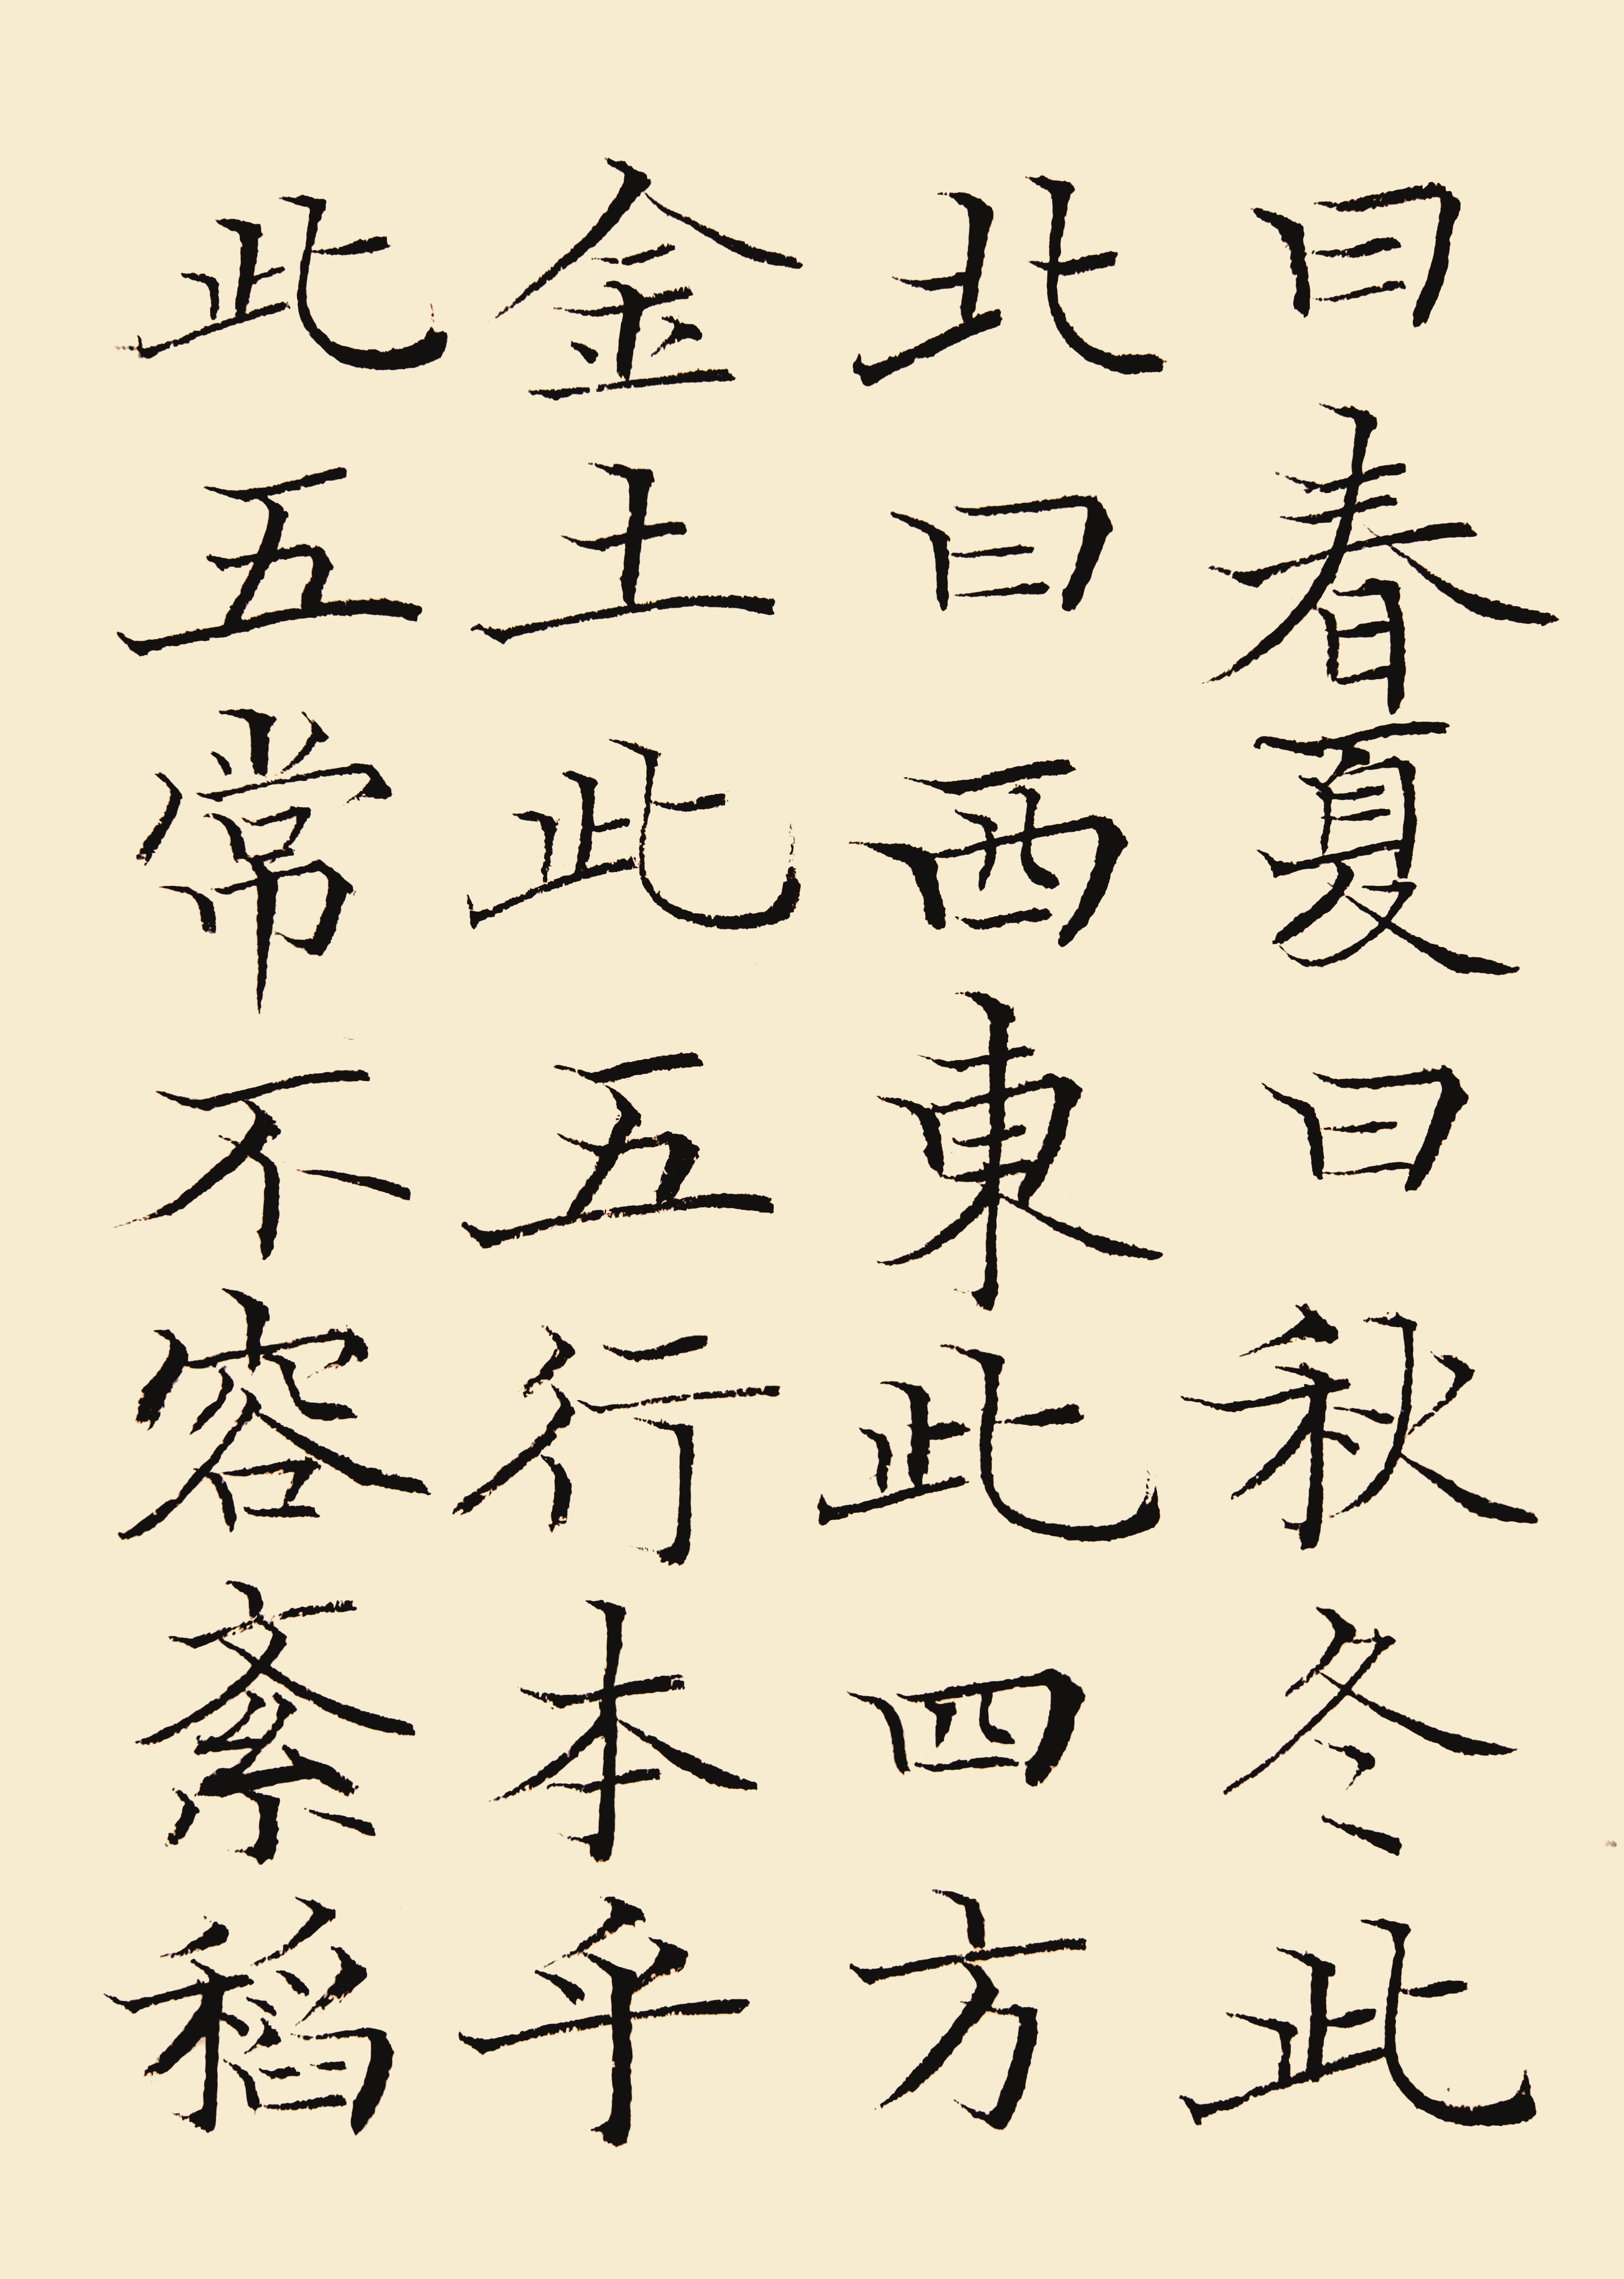 曰春夏曰秋冬此
北曰西東此四方
金土此五行本乎
此五常不容紊稻